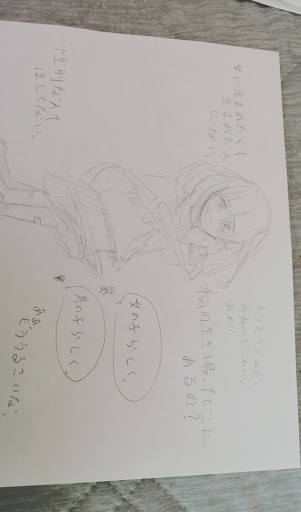 女に生まれたくて
生まれたん
じゃない。
性別なんて
ほしくない。
あれ？
私の生き場ってどこに
あるの？
女の子らしく。
男の子らしく。
ああ、
もううるさいな。